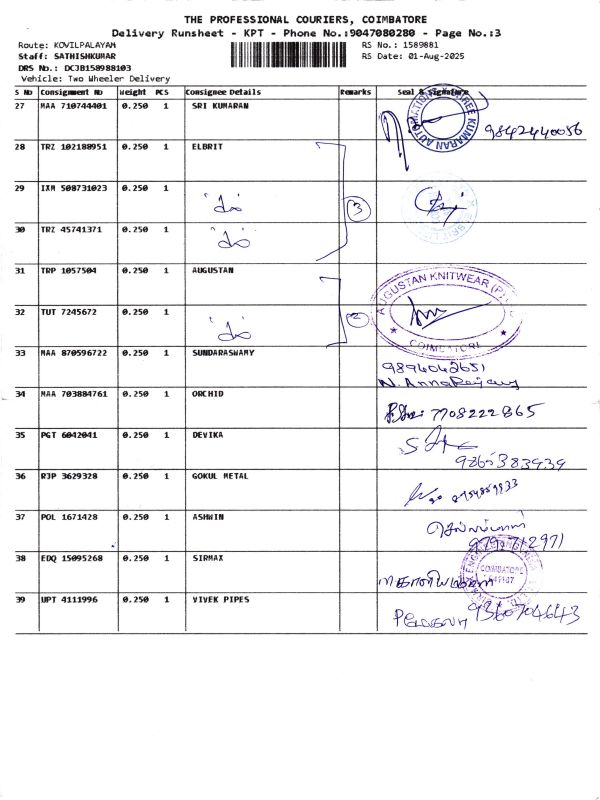 THE PROFESSIONAL COURIERS, COIMBATORE
Delivery Runsheet - KPT - Phone No.:9047080280 - Page No.:3
Route: KOVILPALAYAM RS No.: 1589881
Staff: SATHISHKUMAR RS Date: 01-Aug-2025
DRS No.: DCJB158988103
Vehicle: Two Wheeler Delivery
S NO Consignment NO Weight PCS Consignee Details Remarks Seal & Signature
27 MAA 710744401 0.250 1 SRI KUMARAN 9842440056
28 TRZ 102188951 0.250 1 ELBRIT
29 IXM 508731023 0.250 1 3
30 TRZ 45741371 0.250 1
31 TRP 1057504 0.250 1 AUGUSTAN AUGUSTAN KNITWEAR
32 TUT 7245672 0.250 1 2
COIMBATORE
33 MAA 870596722 0.250 1 SUNDARASWAMY 9894042651
34 MAA 703884761 0.250 1 ORCHID 7708222865
35 PGT 6042041 0.250 1 DEVIKA
9865383939
36 RJP 3629328 0.250 1 GOKUL METAL
37 POL 1671428 0.250 1 ASHWIN
38 EDQ 15095268 0.250 1 SIRMAX COIMBATORE
39 UPT 4111996 0.250 1 VIVEK PIPES 9360704643